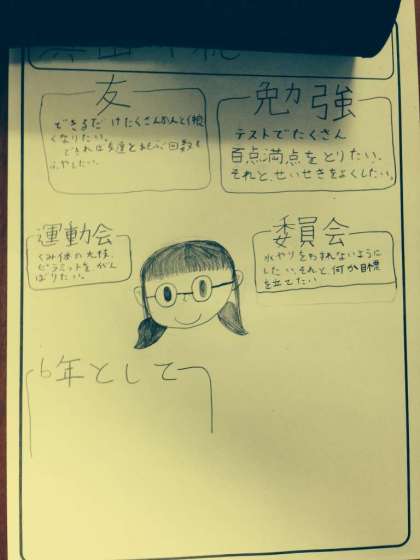 友
できるだけたくさんかんと仲良
くなりたい。
できれば友達とあそぶ回数も
ふやしたい。
勉強
テストでたくさん
百点満点をとりたい。
それと、せいせきをよくしたい。
運動会
くみ体の大技、
ピラミットを がん
ばりたい。
委員会
水やりをわすれないように
したい、それと何か目標
を立てたい
6年として